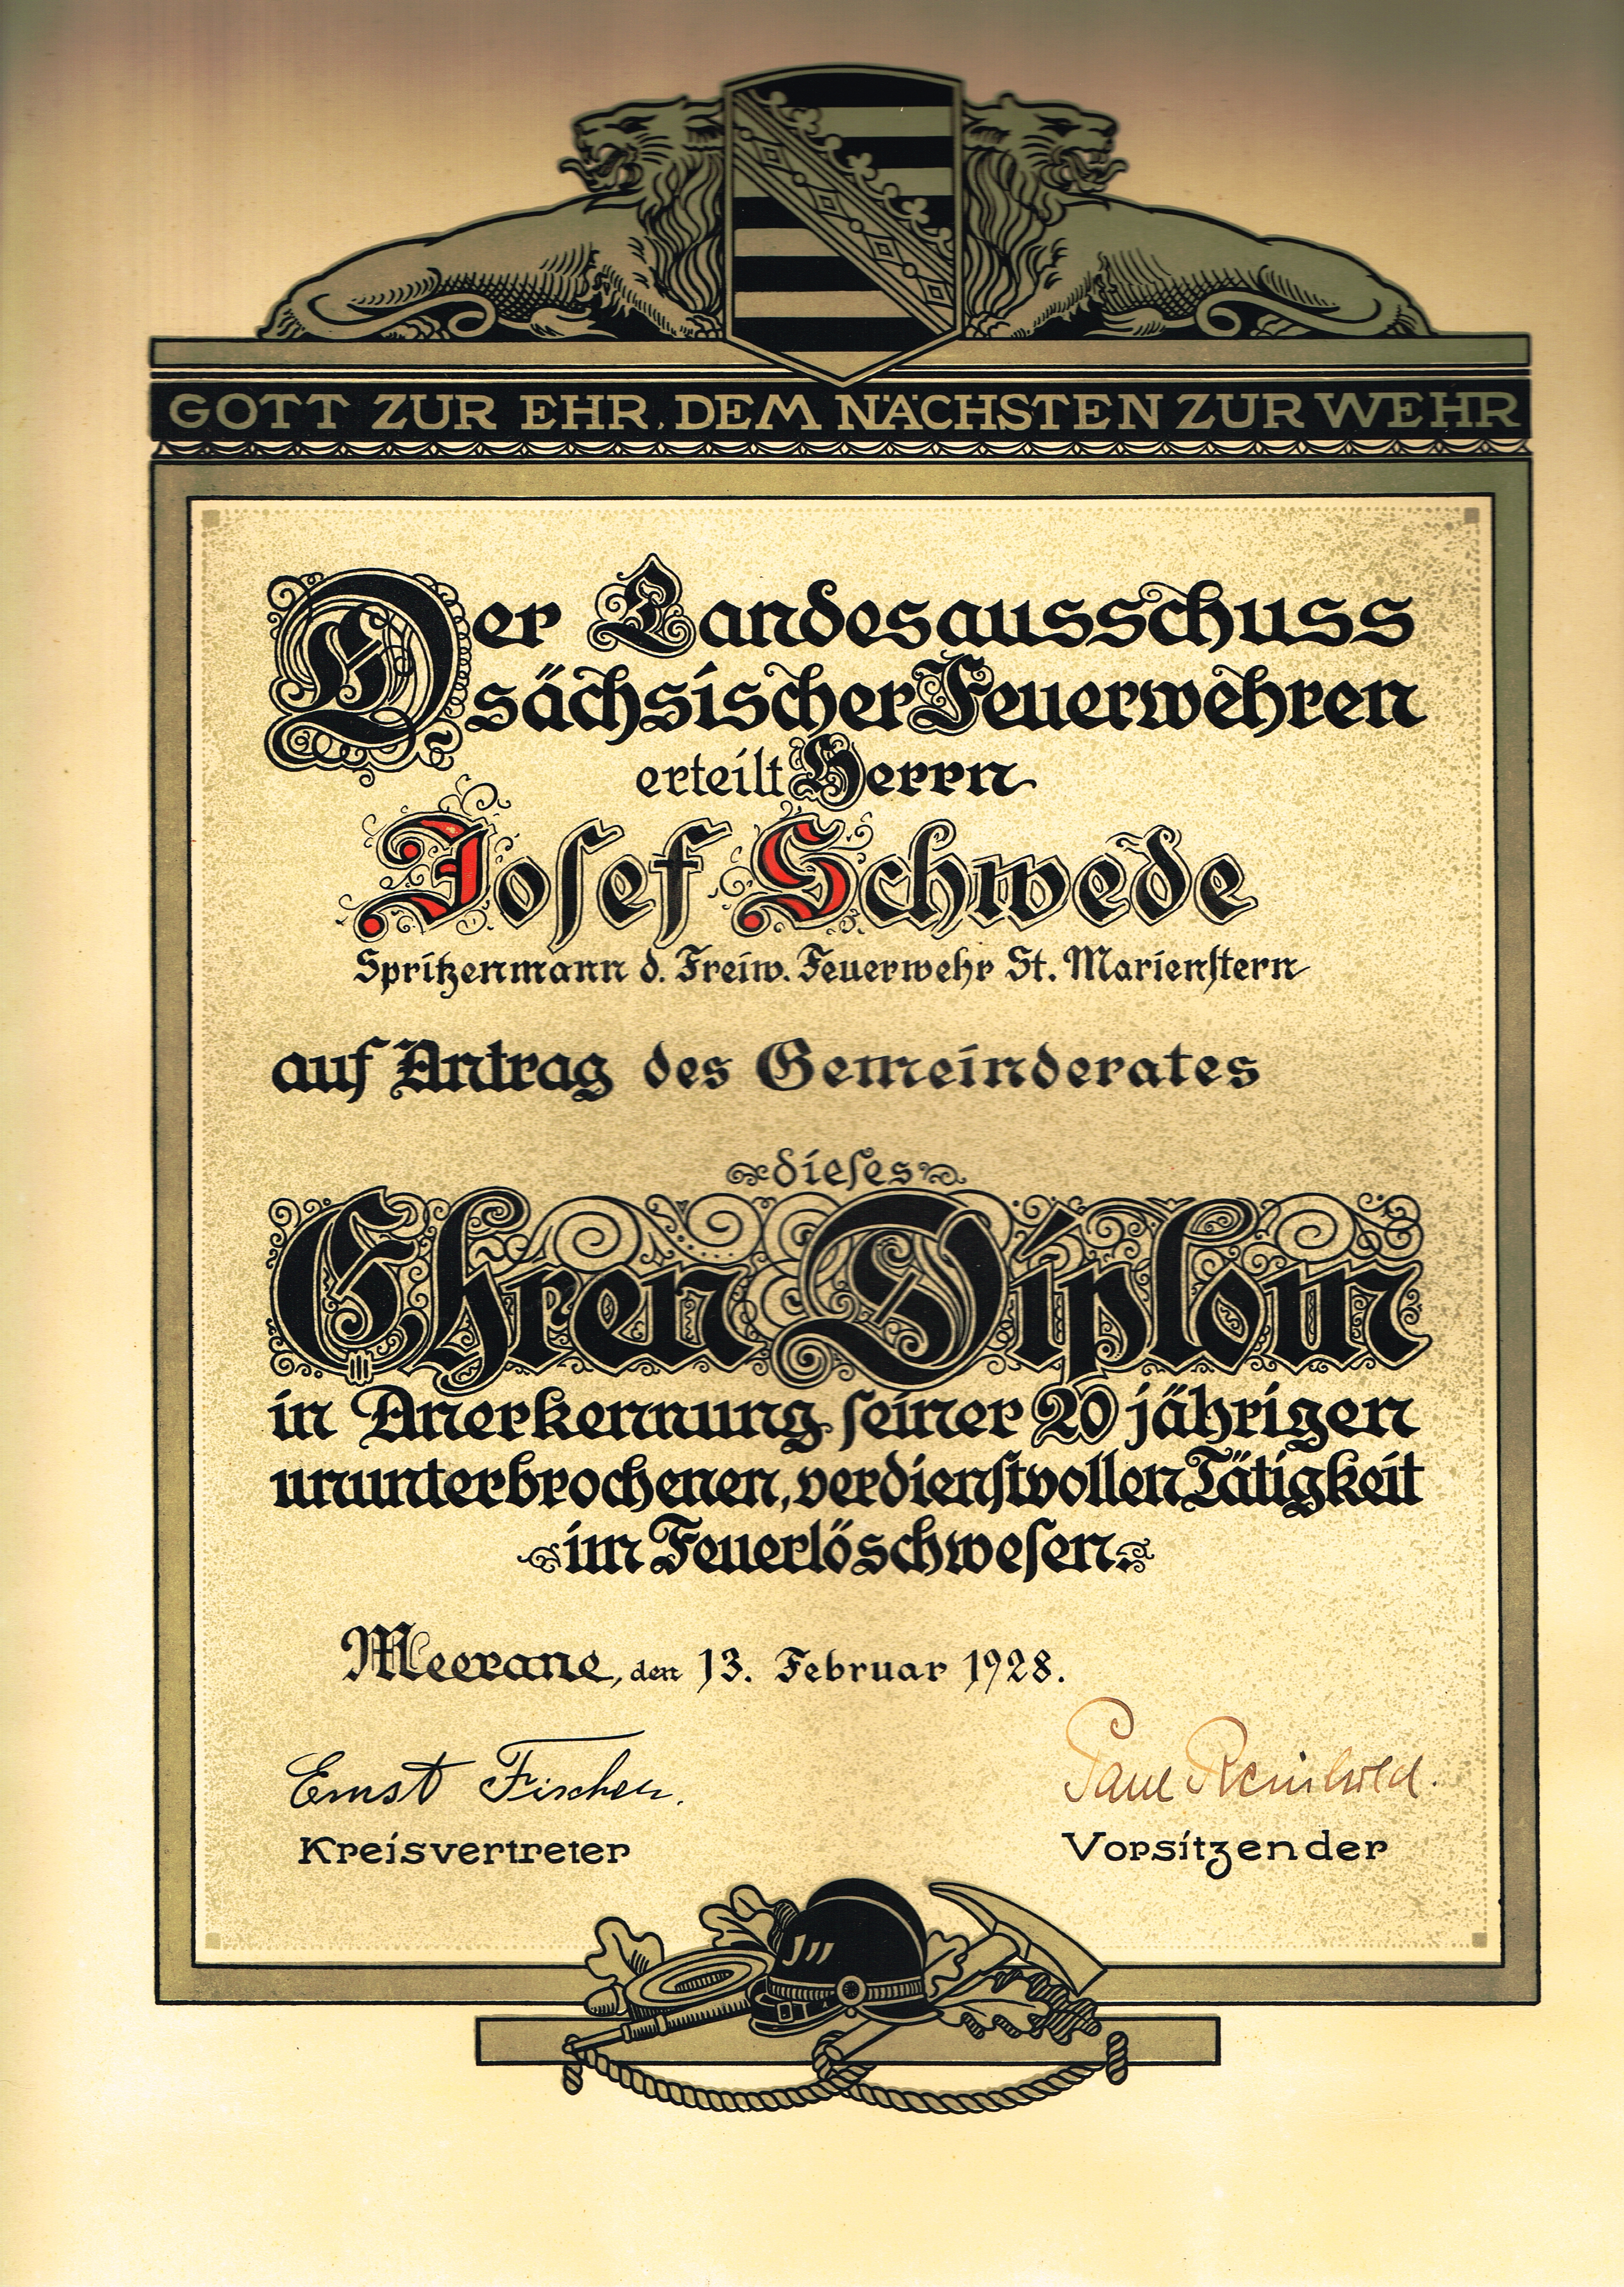 GOTT ZUR EHR, DEM NÄCHSTEN ZUR WEHR
Der Landesausschuss
sächsischer Feuerwehren
erteilt Herrn
Josef Schwede
Spritzenmann d. Freiw. Feuerwehr St. Marienstern
auf Antrag des Gemeinderates
dieses
Ehren Diplom
in Anerkennung seiner 20 jährigen
ununterbrochenen, verdienstvollen Tätigkeit
im Feuerlöschwesen.
Meerane, den 13. Februar 1928.
Ernst Fischer. Paul Reinhold.
Kreisvertreter Vorsitzender